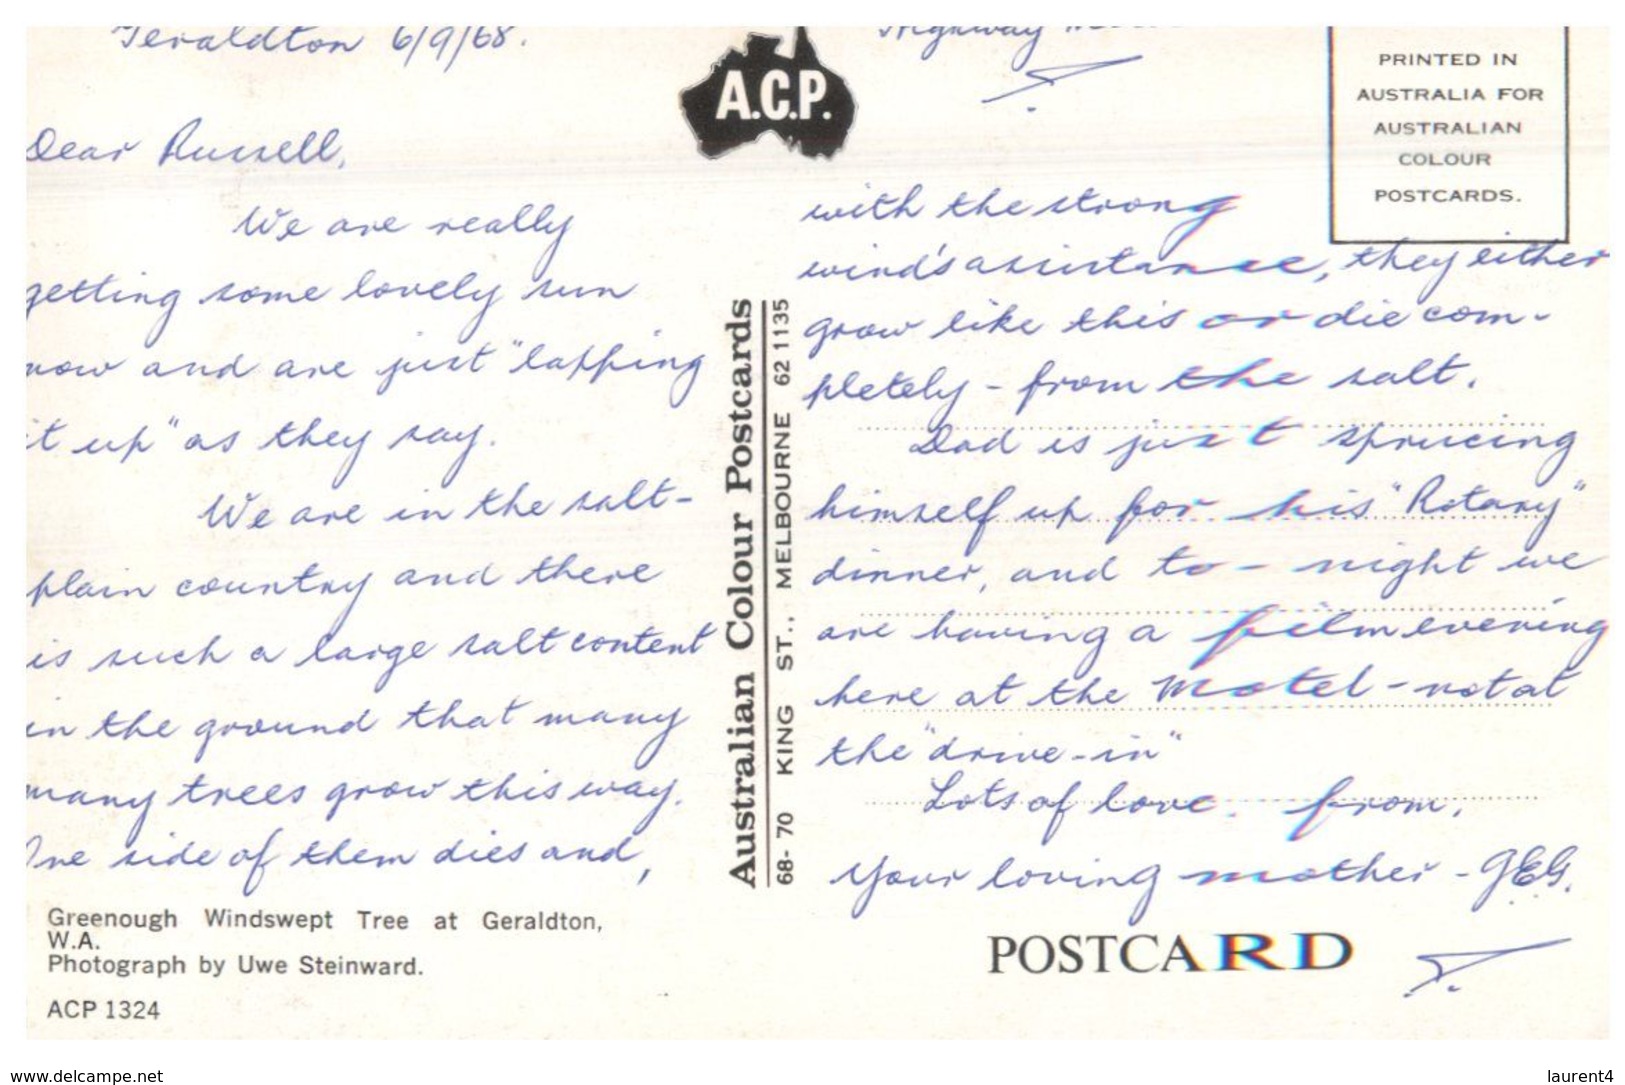 Geraldton 6/9/68.
Highway
A.C.P.
PRINTED IN
AUSTRALIA FOR
AUSTRALIAN
COLOUR
POSTCARDS.
Dear Russell,
We are really
getting some lovely sun
now and are just "lapping
it up" as they say.
We are in the salt-
plain country and there
is such a large salt content
in the ground that many
many trees grow this way.
One side of them dies and,
with the strong
wind's assistance, they either
grow like this or die com-
pletely - from the salt.
Dad is just sprucing
himself up for his "Rotary"
dinner, and to-night we
are having a film evening
here at the Motel - not at
the "drive-in"
Lots of love. from,
Your loving mother - GEG.
Australian Colour Postcards
68-70 KING ST., MELBOURNE 62 1135
Greenough Windswept Tree at Geraldton,
W.A.
Photograph by Uwe Steinward.
ACP 1324
POSTCARD
www.delcampe.net
laurent4